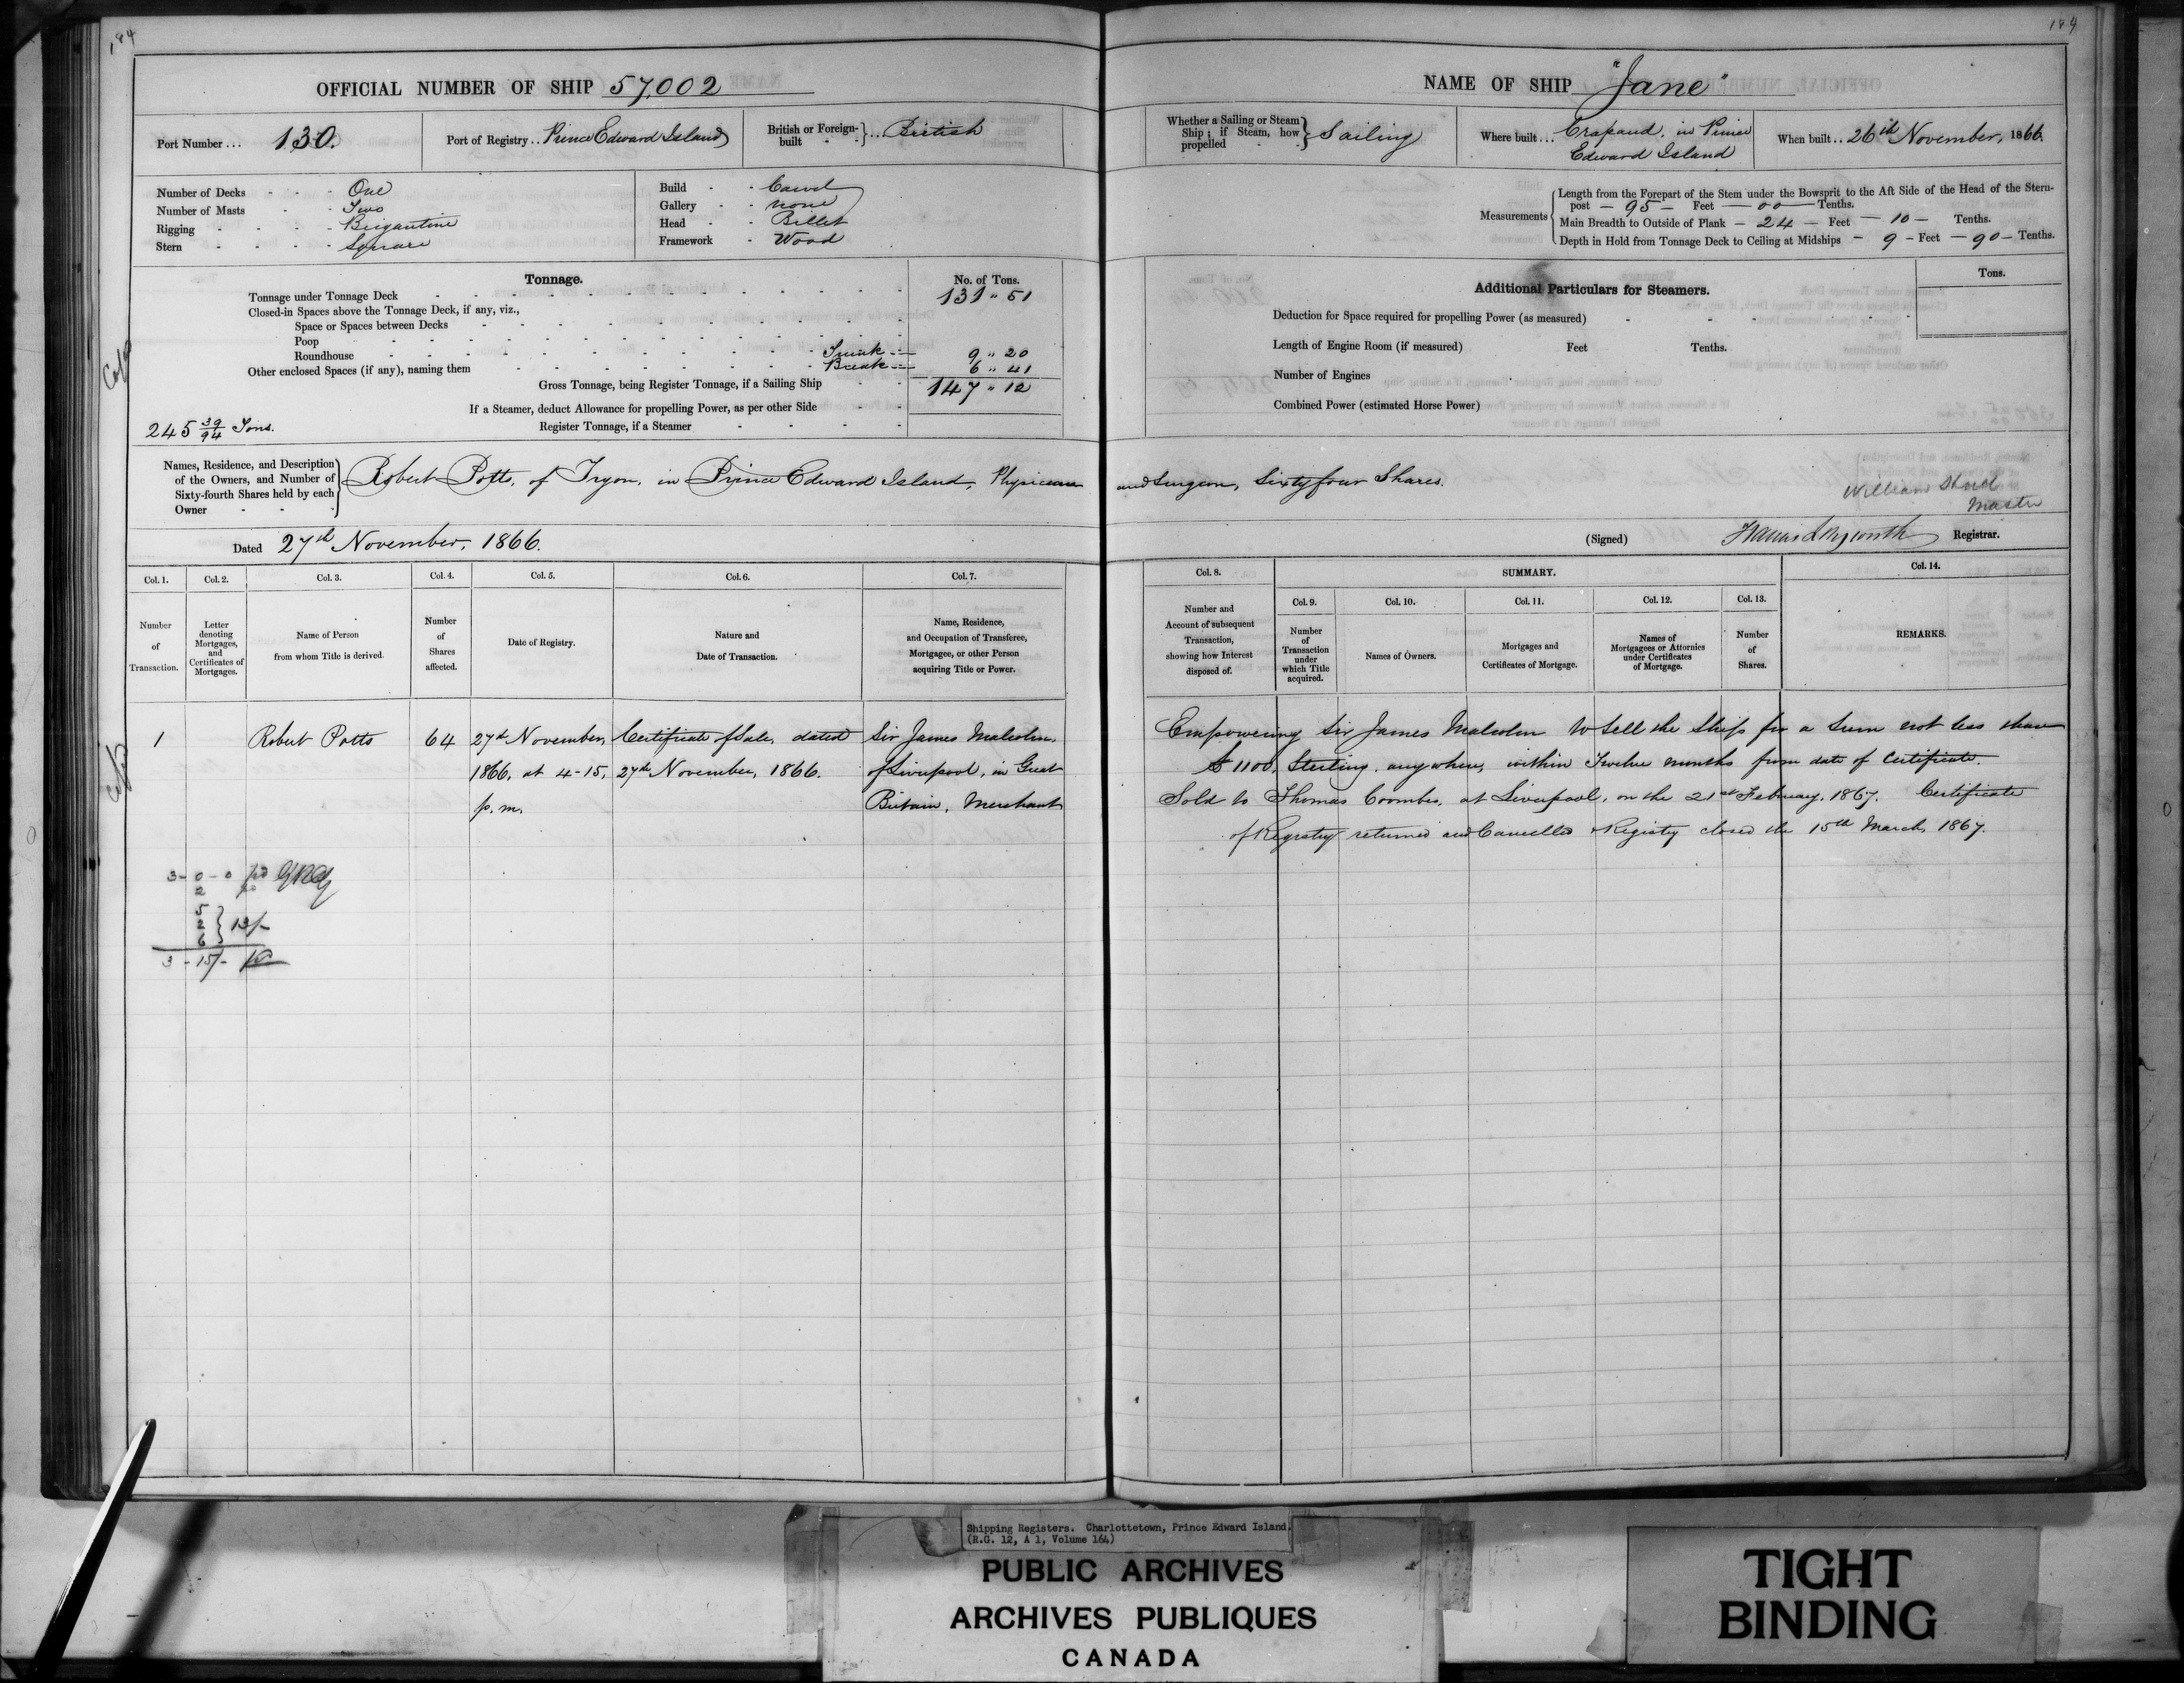 184
OFFICIAL NUMBER OF SHIP 57,002
Port Number ... 130.
Port of Registry .. Prince Edward Island
British or Foreign-built } ... British
Number of Decks - - - One
Number of Masts - - Two
Rigging - - - - Brigantine
Stern - - - - Square
Build - - Carvel
Gallery - - none
Head - - Billet
Framework - Wood
Tonnage.
No. of Tons.
Tonnage under Tonnage Deck 131 " 51
Closed-in Spaces above the Tonnage Deck, if any, viz.,
Space or Spaces between Decks
Poop
Roundhouse 9 " 20
Other enclosed Spaces (if any), naming them Break 6 " 41
Gross Tonnage, being Register Tonnage, if a Sailing Ship 147 " 12
If a Steamer, deduct Allowance for propelling Power, as per other Side
245 39/94 Tons.
Register Tonnage, if a Steamer
Names, Residence, and Description of the Owners, and Number of Sixty-fourth Shares held by each Owner
Robert Potts, of Tryon, in Prince Edward Island, Physician
Dated 27th November, 1866.
Col. 1. Col. 2. Col. 3. Col. 4. Col. 5. Col. 6. Col. 7.
Number of Transaction.
Letter denoting Mortgages, and Certificates of Mortgages.
Name of Person from whom Title is derived.
Number of Shares affected.
Date of Registry.
Nature and Date of Transaction.
Name, Residence, and Occupation of Transferee, Mortgagee, or other Person acquiring Title or Power.
1 Robert Potts 64 27th November, Certificate of Sale, dated Sir James Malcolm,
1866, at 4-15, 27th November, 1866. of Liverpool, in Great
p.m. Britain, Merchant
3 - 0 - 0 pd
2
5
2 } 13/-
6
3 - 15/-
184
NAME OF SHIP "Jane"
Whether a Sailing or Steam Ship; if Steam, how propelled } Sailing
Where built ... Crapaud, in Prince
Edward Island
When built .. 26th November, 1866.
Measurements
Length from the Forepart of the Stem under the Bowsprit to the Aft Side of the Head of the Stern-
post - 95 - Feet - 00 - Tenths.
Main Breadth to Outside of Plank - 24 - Feet - 10 - Tenths.
Depth in Hold from Tonnage Deck to Ceiling at Midships - 9 - Feet - 90 - Tenths.
Additional Particulars for Steamers.
Tons.
Deduction for Space required for propelling Power (as measured)
Length of Engine Room (if measured) Feet Tenths.
Number of Engines
Combined Power (estimated Horse Power)
and Surgeon, Sixty four Shares.
William
Master
(Signed) Registrar.
Col. 8. SUMMARY. Col. 14.
Col. 9. Col. 10. Col. 11. Col. 12. Col. 13.
Number and Account of subsequent Transaction, showing how Interest disposed of.
Number of Transaction under which Title acquired.
Names of Owners.
Mortgages and Certificates of Mortgage.
Names of Mortgagees or Attornies under Certificates of Mortgage.
Number of Shares.
REMARKS.
Empowering Sir James Malcolm to Sell the Ship for a Sum not less than
£1100, Sterling, anywhere, within Twelve months from date of Certificate.
Sold to Thomas Coombes, at Liverpool, on the 21st February, 1867. Certificate
of Registry returned and Cancelled & Registry closed the 15th March, 1867.
Shipping Registers. Charlottetown, Prince Edward Island.
(R.G. 12, A 1, Volume 164)
PUBLIC ARCHIVES
ARCHIVES PUBLIQUES
CANADA
TIGHT
BINDING